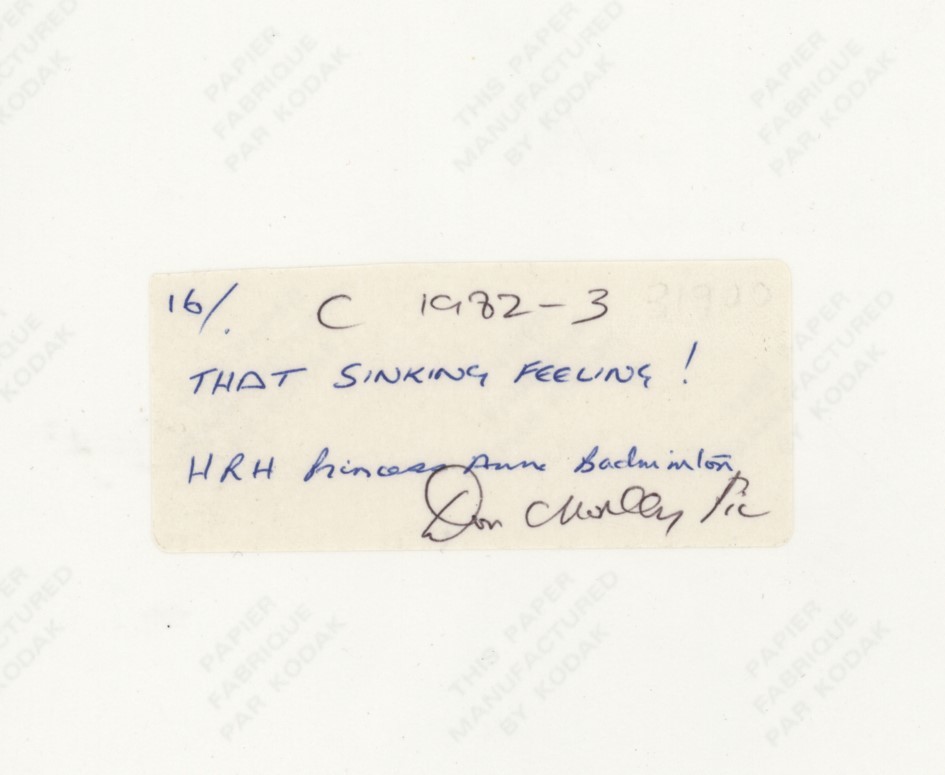 PAPIER
FABRIQUE
PAR KODAK
THIS PAPER
MANUFACTURED
BY KODAK
PAPIER
FABRIQUE
PAR KODAK
16/. C 1982-3
THAT SINKING FEELING!
HRH Princess Anne Badminton
Don Morley Pic
PAPIER
FABRIQUE
PAR KODAK
THIS PAPER
MANUFACTURED
BY KODAK
PAPIER
FABRIQUE
PAR KODAK